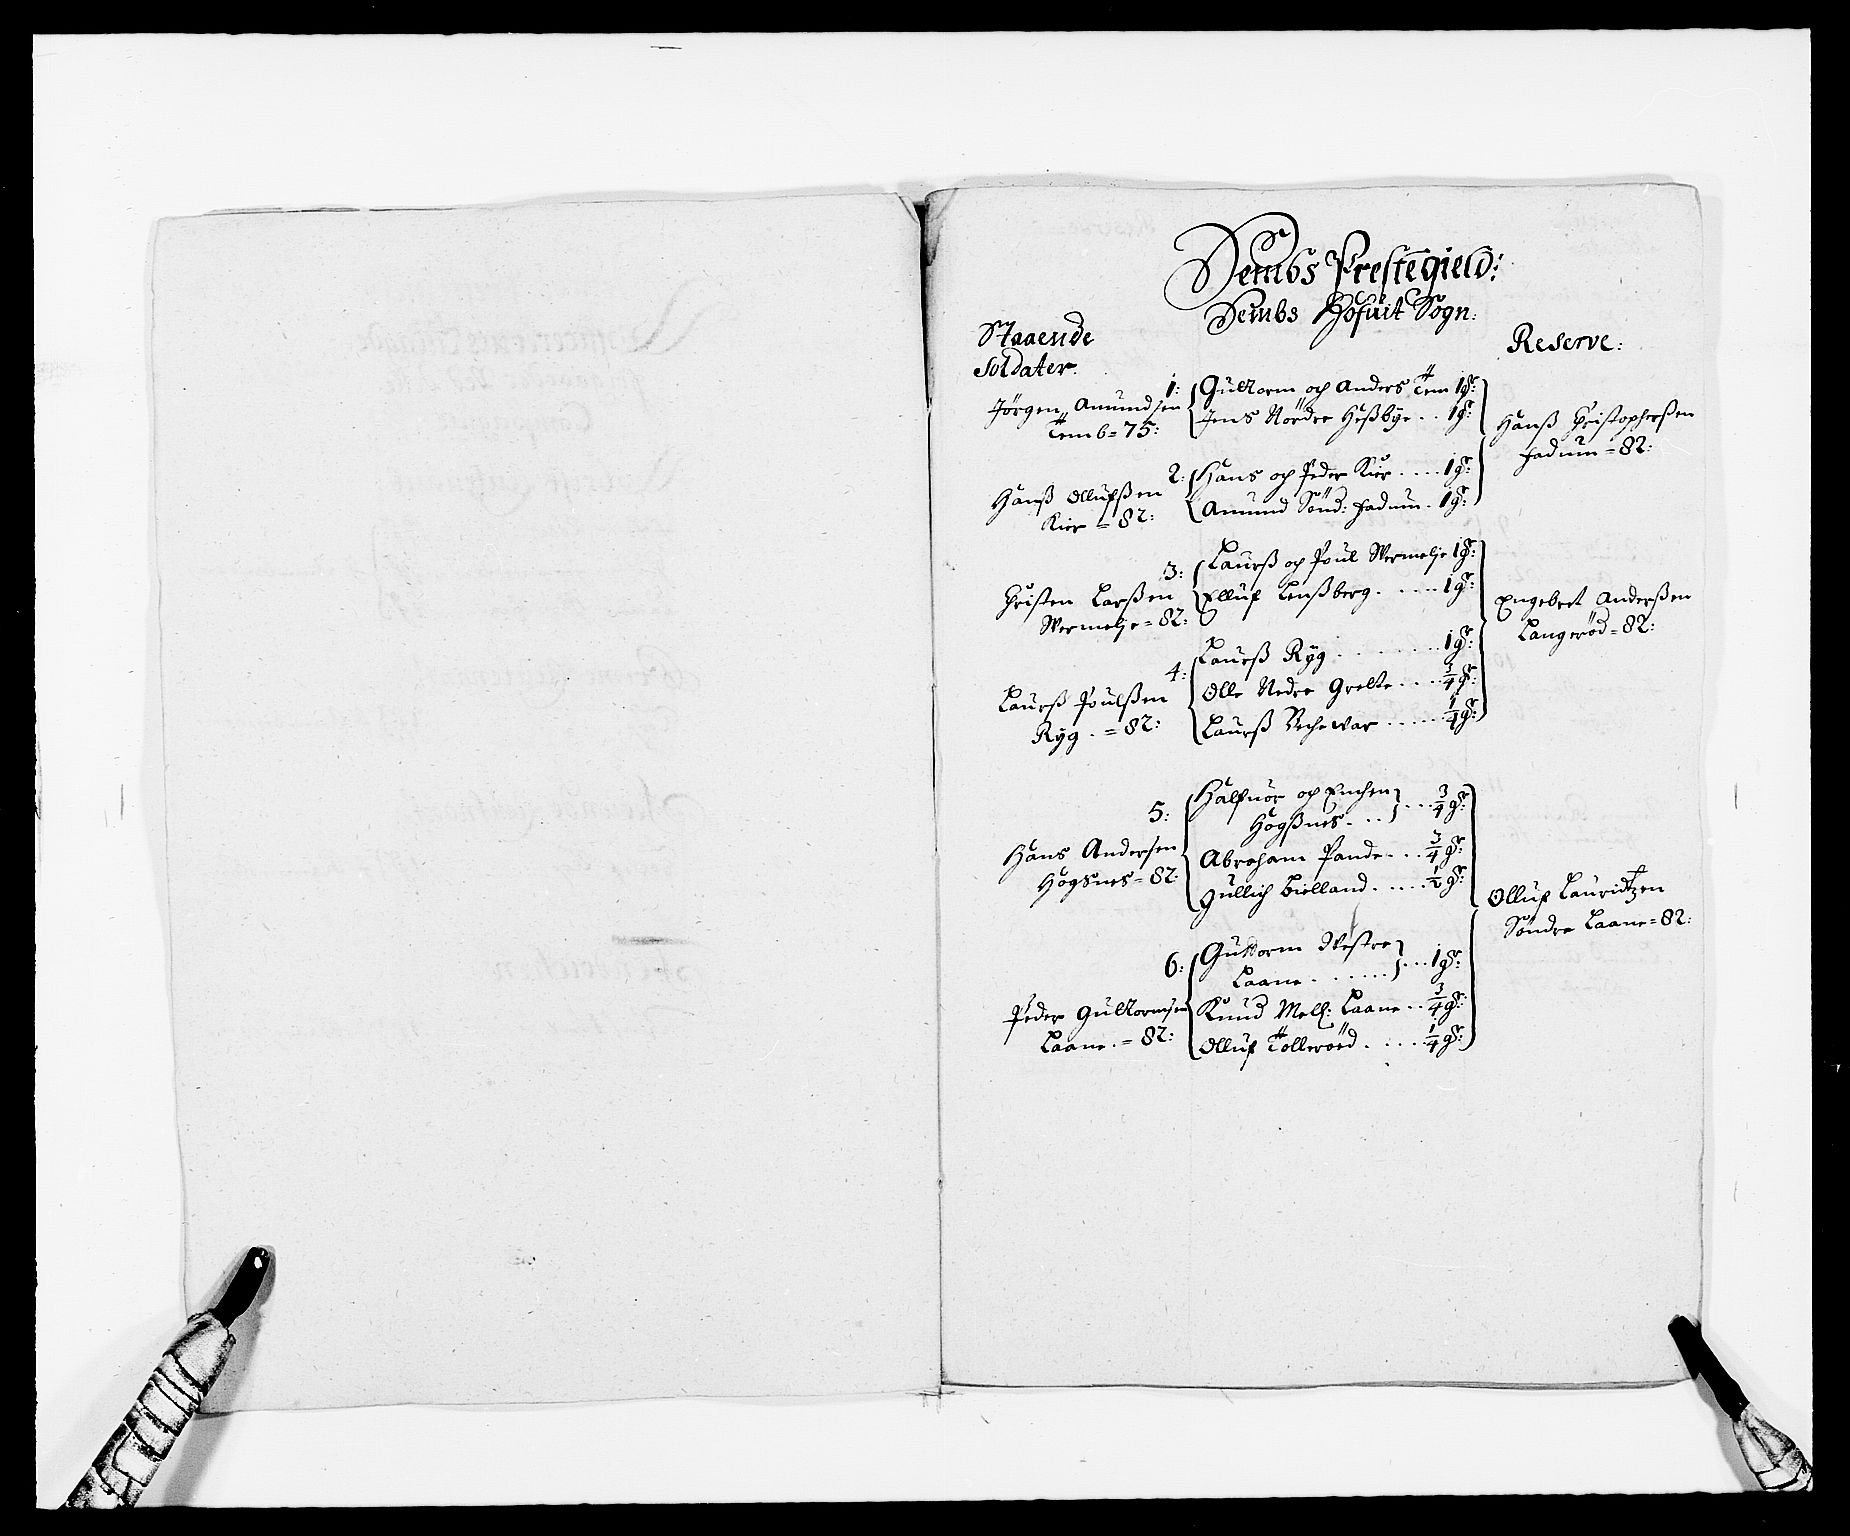 Sembs Prestegield:
Sembs Hofuit Sogn:
Staaende
Soldater.
Reserve:
1:
Jörgen Amundsen
Temb = 75:
Guttorm och Anders Tem 1 gr:
Jens Nördre Heßbye . . 1 gr:
Hanß Christophersen
Fadum = 82:
2:
Hanß Ollufßen
Kier = 82:
Hans och Peder Kier . . . . 1 gr:
Amund Sönd: Fadum . 1 gr:
3:
Christen Larßen
Wermelje = 82:
Laurß och Poul Wermelje 1 gr:
Elluf Lenßberg . . . . . 1 gr:
Engebret Anderßen
Langeröd = 82:
4:
Laurß Poulßen
Ryg . = 82:
Laurß Ryg . . . . . . . 1 gr:
Olle Nedre Grette . . . . 3/4 gr:
Laurß . . . . . 1/4 gr:
5:
Hans Andersen
Hogsnes = 82
Halfuor och
Hogßnes . . . } . . . 3/4 gr:
Abraham Pande . . . 3/4 gr:
Gullich Bielland . . . . . 1/2 gr:
Olluf Lauridtzen
Söndre Laane = 82:
6:
Peder Guttormsen
Laane . = 82:
Guttorm Westre
Laane . . . . . . } . . . 1 gr:
Knud Mell: Laane . . 3/4 gr:
Olluf Tolleröed . . . . . 1/4 gr: